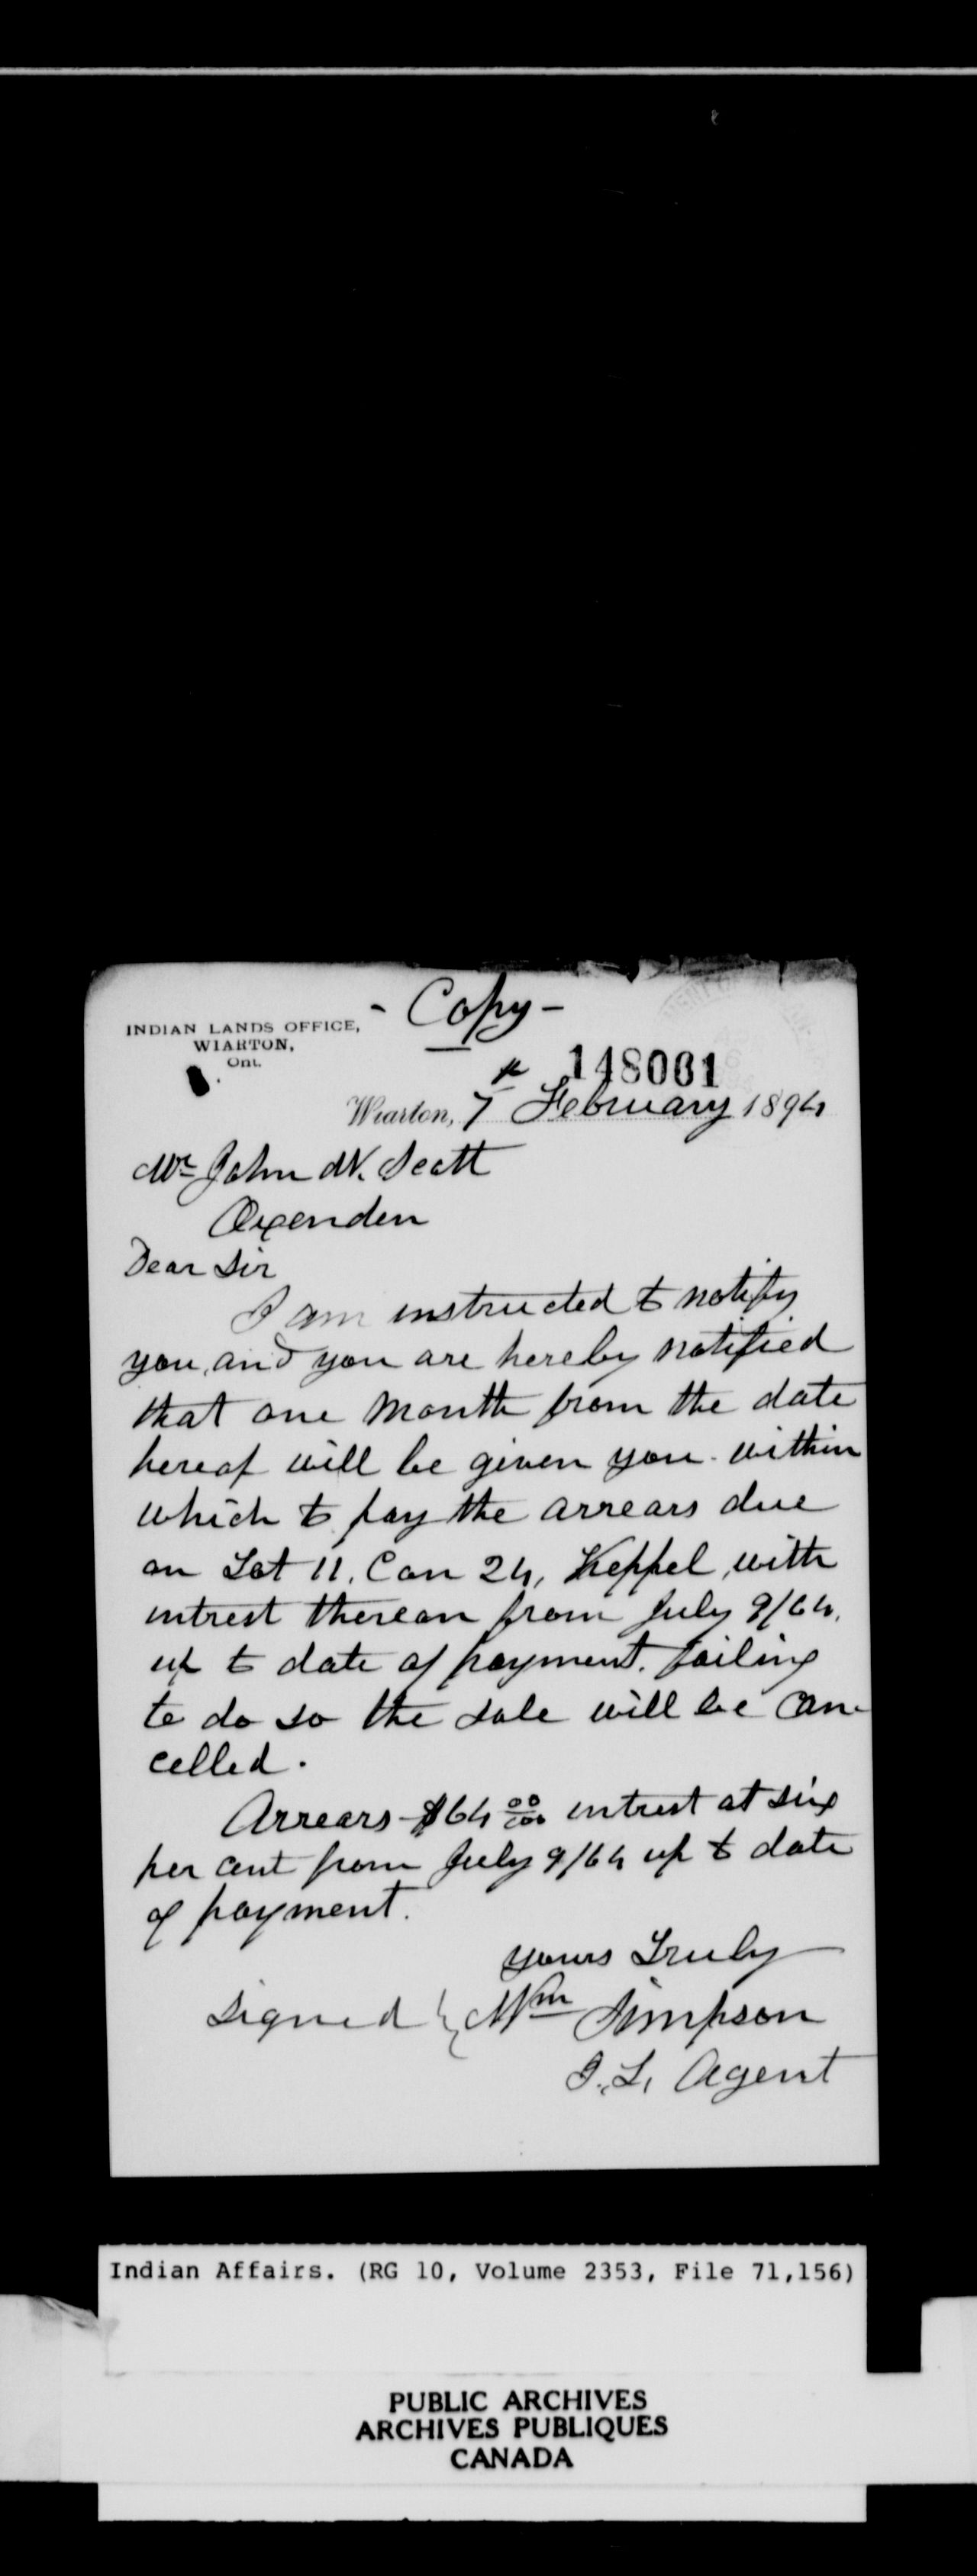 - Copy -
INDIAN LANDS OFFICE,
WIARTON,
Ont.
148001
Wiarton, 7th February 1894
Mr John W. Scott
Oxenden
Dear Sir
I am instructed to notify
you, and you are hereby notified
that one month from the date
hereof will be given you within
which to pay the arrears due
on Lot 11, Con 24, Keppel, with
intrest thereon from July 9/64,
up to date of payment. failing
to do so the sale will be can-
celled.
Arrears $64 00/100 intrest at six
per cent from July 9/64 up to date
of payment.
yours Truly
Signed { Wm Simpson
I. L. Agent
Indian Affairs. (RG 10, Volume 2353, File 71,156)
PUBLIC ARCHIVES
ARCHIVES PUBLIQUES
CANADA